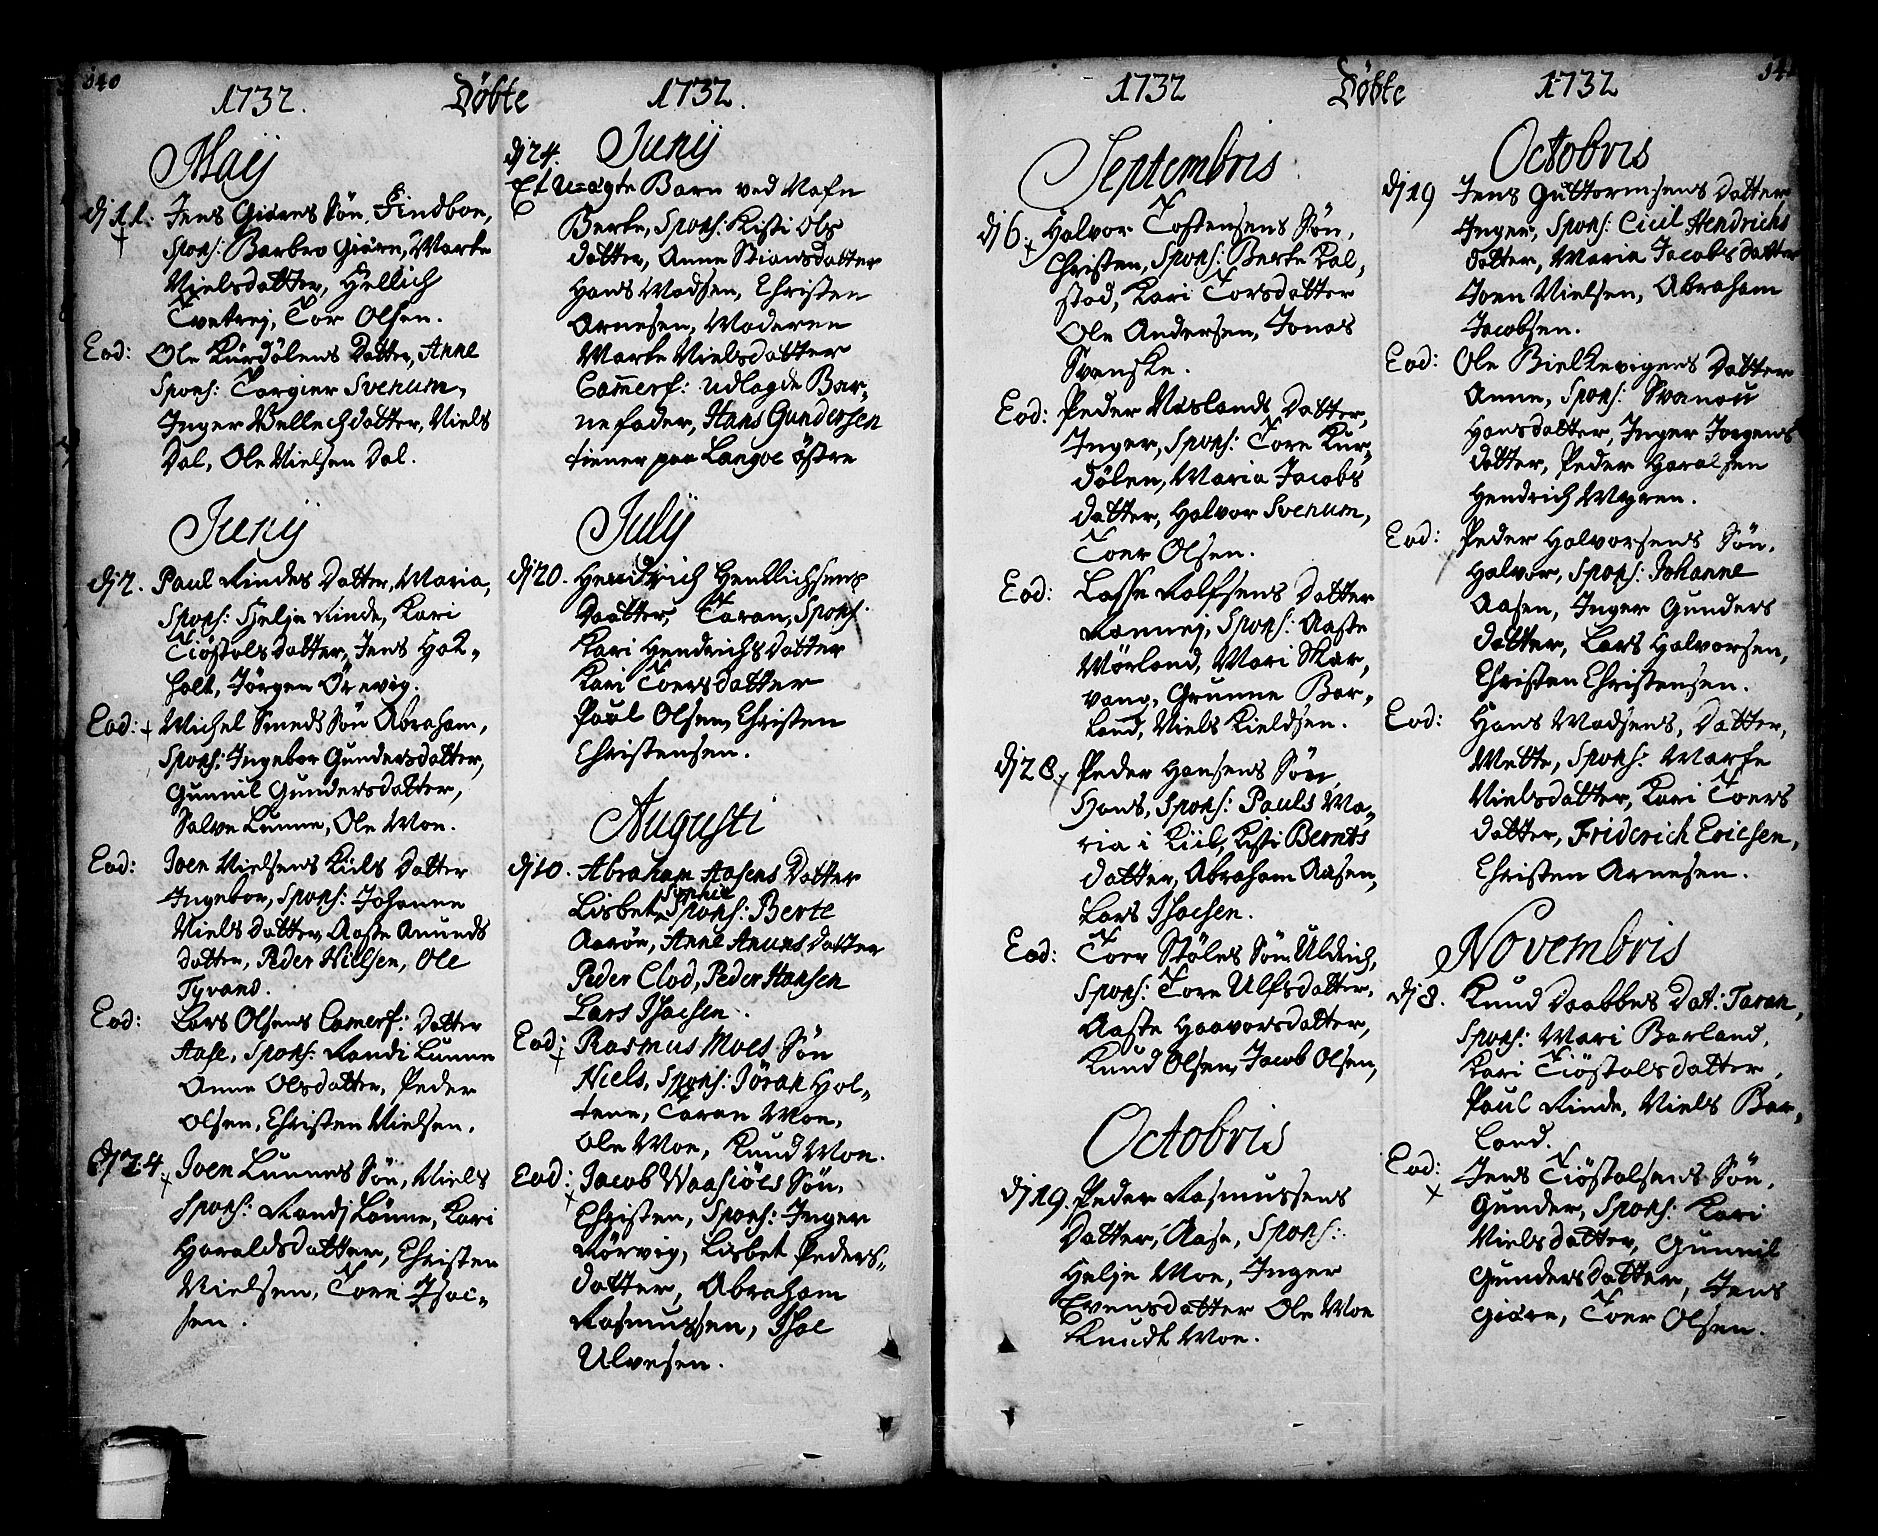 340
1732. Döbte 1732.
Maij
dj 11. Jens Giørnes Søn, Findboe,
Spons: Barbro Giørn, Marte
Nielsdatter, Hellich
Tvetrej, Tor Olsen.
Eod: Ole Kurdølens Datter, Anne
Spons: Torgier Svenum,
Inger Vellechdatter, Niels
Dal, Ole Nielsen Dal.
Junij
dj 2. Paul Rindes Datter, Maria,
Spons: Helje Rinde, Kari
Tiøstolsdatter, Jens Hok-
holt, Jørgen Ørevig.
Eod: + Michel Smeds Søn Abraham,
Spons: Ingebor Gundersdatter,
Gunnil Gundersdatter,
Salve Lunne, Ole Moe.
Eod: Joen Nielsens Kiils Datter
Ingebor, Spons: Johanne
Nielsdatter, Aaste Amunds
datter, Peder Nielsen, Ole
Tyvand.
Eod: Lars Olsens Camerf: Datter
Aase, Spons: Randi Lunne
Anne Olsdatter, Peder
Olsen, Christen Nielsen.
dj 24. + Joen Lunnes Søn, Niels
Spons: Randj Lønne, Kari
Haraldsdatter, Christen
Nielsen, Tore Isac-
sen.
dj 24. Junij
Et uægte Barn ved Nafn
Berte, Spons: Kisti Ols
datter, Anne Stiansdatter
Hans Madsen, Christen
Arnesen, Moderen
Marte Nielsdatter
Camerf: udlagde Bar-
nefader, Hans Gundersen
tiener paa Langøe östre
Julij
dj 20. Hendrich Hentlichsens
Daatter, Taran, Spons:
Kari Hendrichsdatter
Kari Toersdatter
Poul Olsen, Christen
Christensen.
Augusti
dj 10. Abraham Aasens Datter
Lisbet Sophie Spons: Berte
Aarøn, Anne Amunsdatter
Peder Clod, Peder Hansen
Lars Isacsen.
Eod: + Rasmus Moes Søn
Niels, Spons: Jöran Hol-
tene, Taran Moe,
Ole Moe, Knud Moe.
Eod: + Jacob Waasiøes Søn,
Christen, Spons: Inger
Rørvig, Lisbet Peders-
datter, Abraham
Rasmussen, Isac
Ulvesen.
1732 Döbte 1732
Septembris
dj 6. + Halvor Tostensens Søn,
Christen, Spons: Berte Kal,
stad, Kari Torsdatter
Ole Andersen, Jonas
Svenske.
Eod: Peder Næslands Datter,
Inger, Spons: Tore Kur-
dølen, Maria Jacobs
datter, Halvor Svenum,
Toer Olsen.
Eod: Lasse Rolfsens Datter
Ronnej, Spons: Aaste
Mörland, Mari Skar,
vang, Grunne Bar-
land, Niels Kieldsen.
dj 28. + Peder Hansens Søn,
Hans, Spons: Pauls Ma-
ria i Kiil, Kisti Bernts
datter, Abraham Aasen,
Lars Isacsen.
Eod: Toer Støles Søn Uldrich,
Spons: Tore Ulfsdatter,
Aaste Haavorsdatter,
Knud Olsen, Jacob Olsen,
Octobris
dj 19. Peder Rasmussens
Datter, Aase, Spons:
Helje Moe, Inger
Evensdatter Ole Moe
Knudt Moe.
Octobris
dj 19 Jens Guttormsens Datter
Inger, Spons: Cicil Hendrichs
datter, Maria Jacobsdatter
Joen Nielsen, Abraham
Jacobsen.
Eod: Ole Bielkevigens Datter
Anne, Spons: Svanou
Hansdatter, Inger Jorgens
datter, Peder Haralsen
Hendrich Myren.
Eod: Peder Halvorsens Søn,
Halvor, Spons: Johanne
Aasen, Inger Gunders
datter, Lars Halvorsen,
Christen Christensen.
Eod: Hans Madsens, Datter,
Mette, Spons: Marte
Nielsdatter, Kari Toers
datter, Friderich Ericsen,
Christen Arnesen.
Novembris
dj 8. Knud Daabbes Dat: Taran,
Spons: Mari Barland,
Kari Tiøstolsdatter,
Poul Rinde, Niels Bar,
land.
Eod: + Jens Tiøstolsens Søn,
Gunder, Spons: Kari
Nielsdatter, Gunnil
Gundersdatter, Jens
Giörn, Toer Olsen.